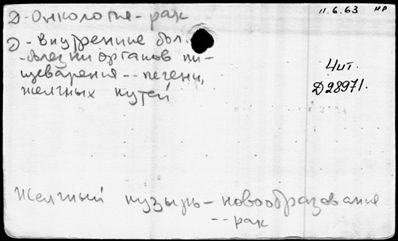 Д-Онкология-рак
11.6.63 НР
Д-Внутренние бол.
-болезни органов пи-
щеварения--печени,
желчных путей
Чит.
Д28971.
Желчный пузырь-новообразование
--рак